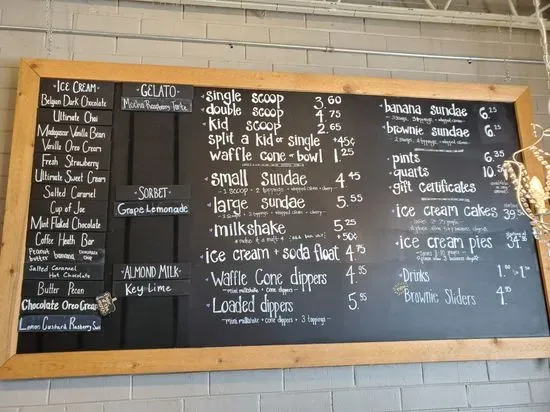 ICE CREAM
Belgian Dark Chocolate
Ultimate Chai
Madagascar Vanilla Bean
Vanilla Oreo Cream
Fresh Strawberry
Ultimate Sweet Cream
Salted Caramel
Cup of Joe
Mint Flaked Chocolate
Coffee Heath Bar
Peanut butter banana chocolate chip
Salted Caramel
Hot Chocolate
Butter Pecan
Chocolate Oreo Cream
Lemon Custard Raspberry Swirl
GELATO
Mocha Raspberry Torte
SORBET
Grape Lemonade
ALMOND MILK
Key Lime
single scoop 3.60
double scoop 4.75
kid scoop 2.65
split a kid or single +45¢
waffle cone or bowl 1.25
small sundae 4.45
- 1 scoop - 2 toppings - whipped cream - cherry -
large sundae 5.55
- 2 scoops - 2 toppings - whipped cream - cherry -
milkshake 5.25
+50¢
ice cream + soda float 4.75
Waffle Cone dippers 4.95
mini milkshake + cone dippers
Loaded dippers 5.95
mini milkshake + cone dippers + 3 toppings -
banana sundae 6.25
brownie sundae 6.25
pints 6.35
quarts 10.50
gift certificates
ice cream cakes 39.50
ice cream pies 34.95
Drinks 1.
Brownie Sliders 4.